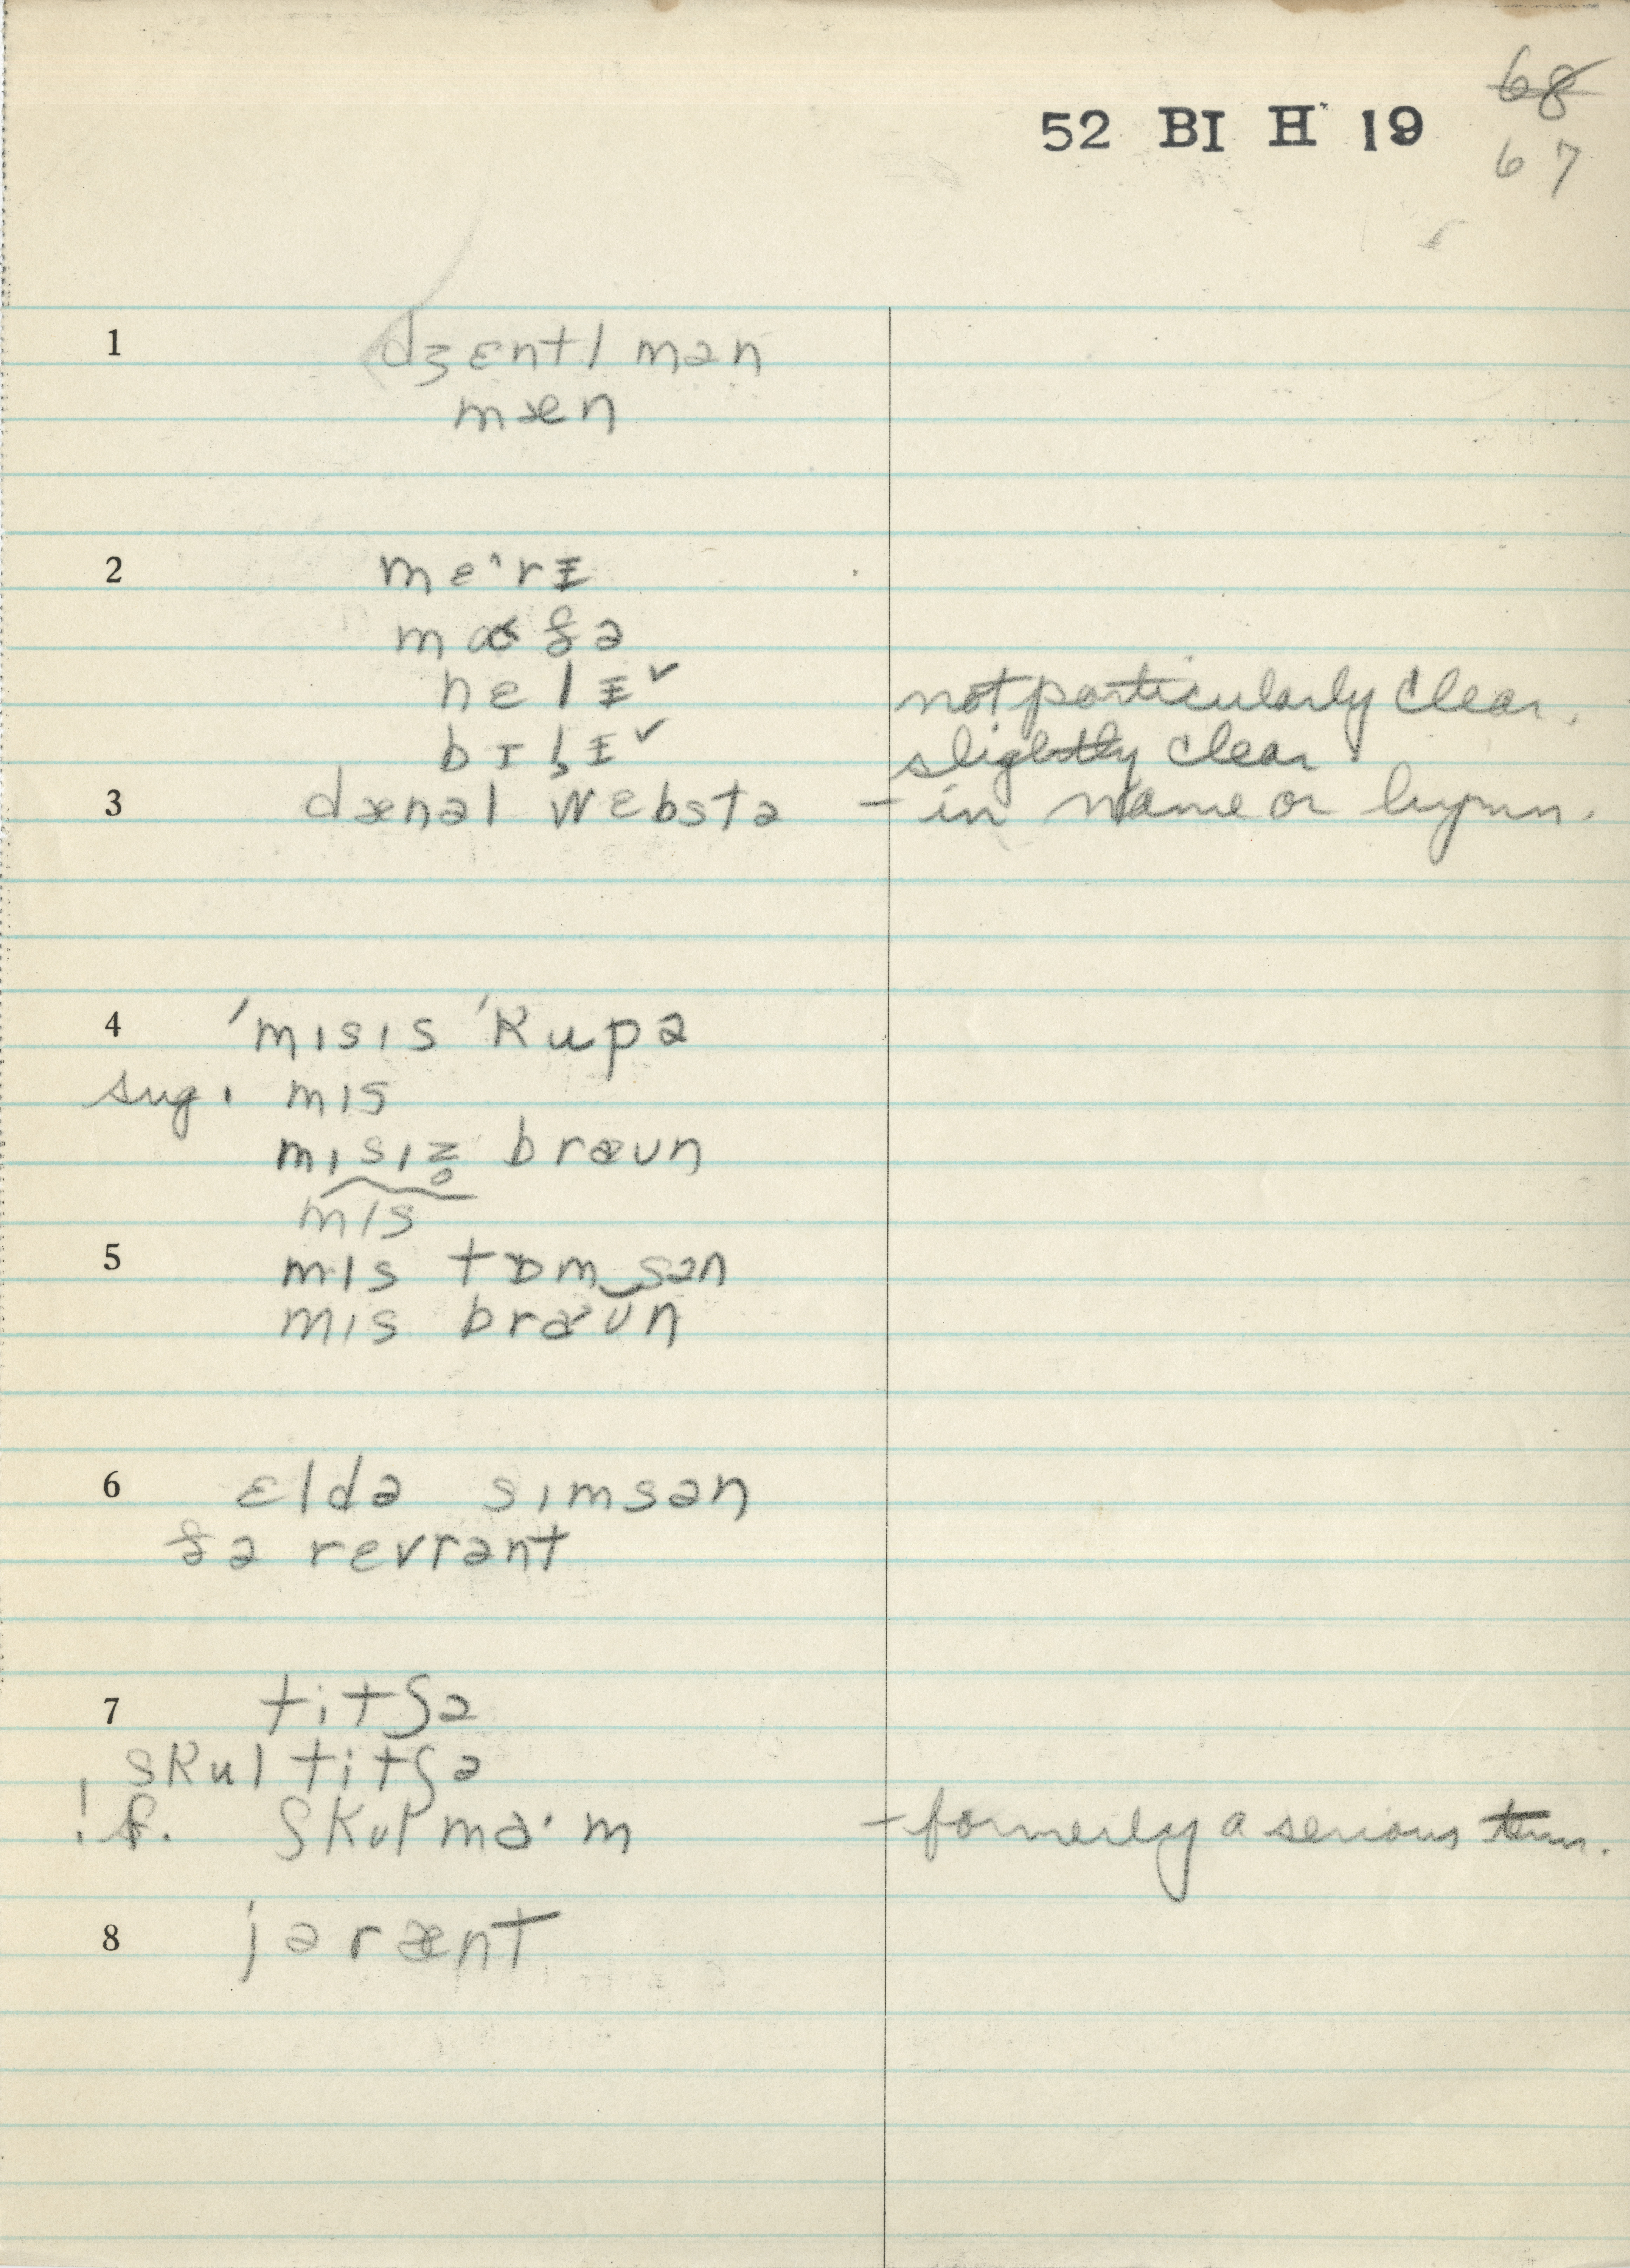 68
52 BI H 19
67
1 dʒɛntl mən
mæn
2 mɛˑrɪ
mɑðə
nɛlɪ ✓ not particularly clear.
bɪlɪ ✓ slightly clear
3 dænəl wɛbstə – in name or hymn.
4 ˈmɪsɪs ˈkupə
sug. mɪs
mɪsɪz̥ bræun
mɪs
5 mɪs tɒm‿sən
mɪs bræun
6 ɛldə sɪmsən
ðə rɛvrənt
7 titʃə
skul titʃə
! f. skulmaˑm – formerly a serious term.
8 jərænt